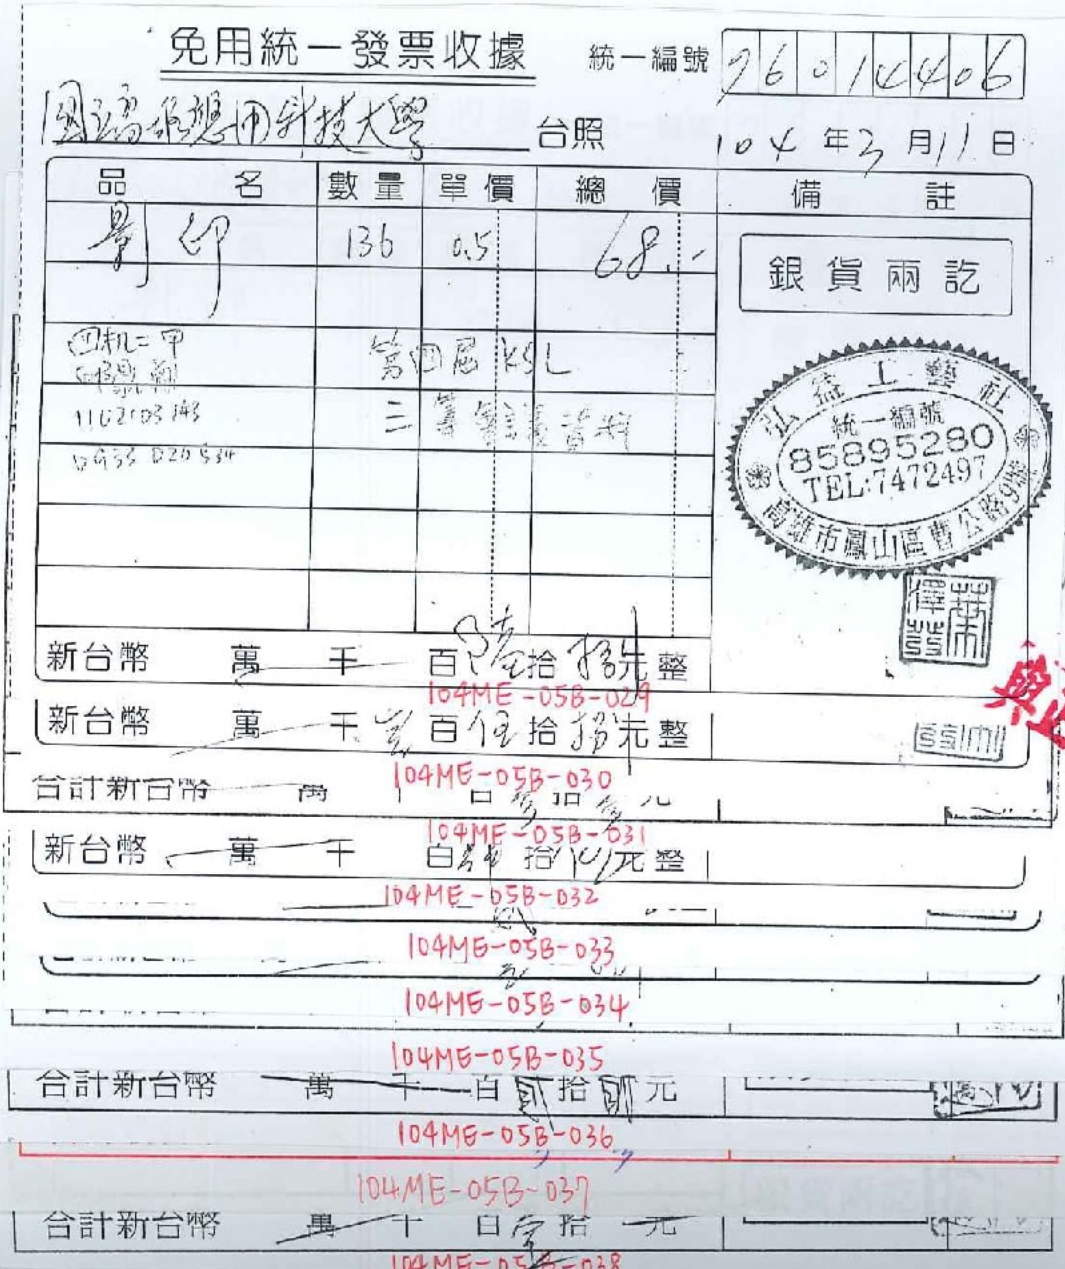 免用統一發票收據 統一編號 76014406
國立高雄應用科技大學 台照 104年3月11日
品名 數量 單價 總價 備註
影印 136 0.5 68.-
銀貨兩訖
四機二甲 第四屆 KSL
1102103143 二籌會議資料
弘益工藝社
統一編號
85895280
TEL:7472497
高雄市鳳山區曹公路9號
新台幣 萬 千 百陸拾捌元整
104ME-05B-029
新台幣 萬 千壹百伍拾捌元整
104ME-05B-030
合計新台幣 萬 百 拾 元
104ME-05B-031
新台幣 萬 千 百 拾 元整
104ME-05B-032
104ME-05B-033
104ME-05B-034
104ME-05B-035
合計新台幣 萬 千 百貳拾貳元
104ME-05B-036
104ME-05B-037
合計新台幣 萬 千 百 拾 元
104ME-05B-038